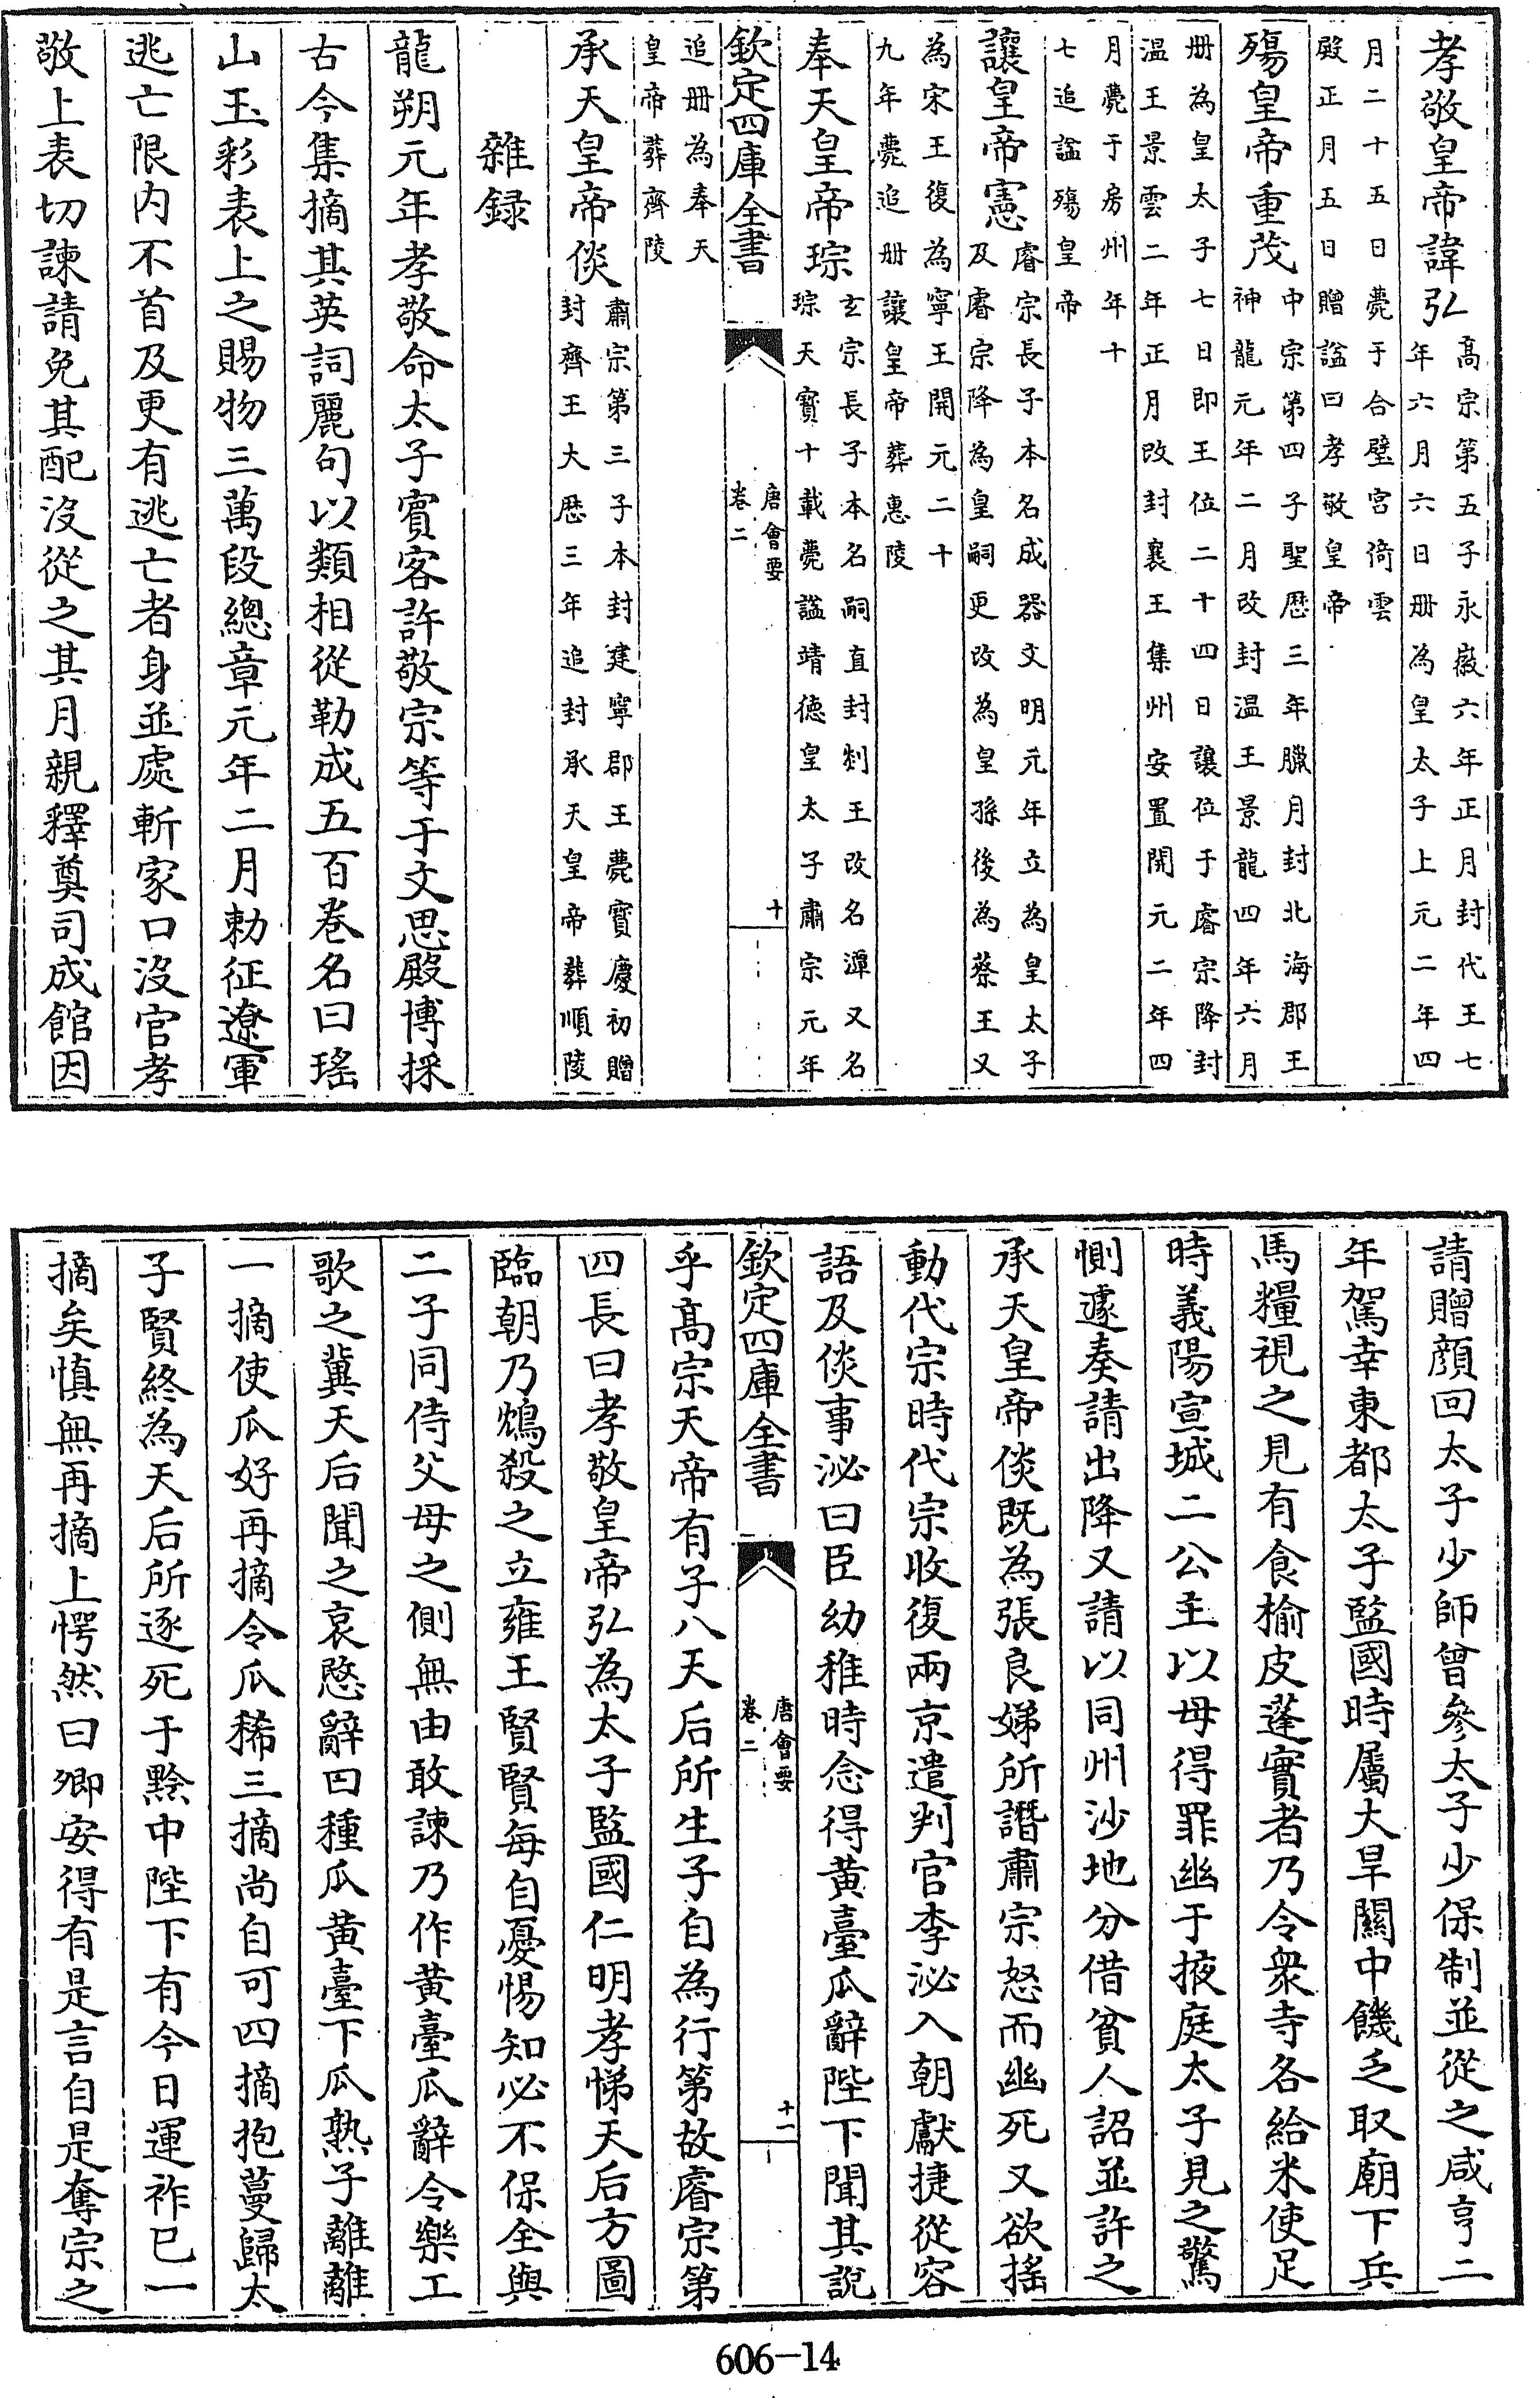 孝敬皇帝諱弘高宗第五子永㣲六年正月封代王七
年六月六日册為皇太子上元二年四
月二十五日薨于合璧宫倚雲
殿正月五日贈諡曰孝敬皇帝
殤皇帝重茂中宗第四子聖厯三年臘月封北海郡王
神龍元年二月改封温王景龍四年六月
册為皇太子七日即王位二十四日讓位于睿宗降封
温王景雲二年正月改封襄王集州安置開元二年四
月薨于房州年十
七追諡殤皇帝
讓皇帝憲睿宗長子本名成器文明元年立為皇太子
及睿宗降為皇嗣更改為皇孫後為蔡王又
為宋王復為寧王開元二十
九年薨追册讓皇帝葬惠陵
奉天皇帝琮玄宗長子本名嗣直封剡王改名潭又名
琮天寳十載薨諡靖德皇太子肅宗元年
欽定四庫全書
唐會要
卷二
十
追册為奉天
皇帝葬齊陵
承天皇帝倓肅宗第三子本封建寧郡王薨寳慶初贈
封齊王大厯三年追封承天皇帝葬順陵
雜録
龍朔元年孝敬命太子賓客許敬宗等于文思殿博採
古今集摘其英詞麗句以類相從勒成五百巻名曰瑤
山玉彩表上之賜物三萬段總章元年二月勅征遼軍
逃亡限内不首及更有逃亡者身並處斬家口沒官孝
敬上表切諫請免其配沒從之其月親釋奠司成館因
請贈顔回太子少師曾參太子少保制並從之咸亨二
年駕幸東都太子監國時屬大旱關中饑乏取廟下兵
馬糧視之見有食榆皮蓬實者乃令衆寺各給米使足
時義陽宣城二公主以母得罪幽于掖庭太子見之驚
惻遽奏請出降又請以同州沙地分借貧人詔並許之
承天皇帝倓既為張良娣所譖肅宗怒而幽死又欲搖
動代宗時代宗收復兩京遣判官李泌入朝獻捷從容
語及倓事泌曰臣幼稚時念得黄臺瓜辭陛下聞其說
欽定四庫全書
唐會要
卷二
十一
乎髙宗天帝有子八天后所生子自為行第故睿宗第
四長曰孝敬皇帝弘為太子監國仁明孝悌天后方圖
臨朝乃鴆殺之立雍王賢賢每自憂惕知必不保全與
二子同侍父母之側無由敢諫乃作黄臺瓜辭令樂工
歌之冀天后聞之哀愍辭曰種瓜黄臺下瓜熟子離離
一摘使瓜好再摘令瓜稀三摘尚自可四摘抱蔓歸太
子賢終為天后所逐死于黔中陛下有今日運祚已一
摘矣慎無再摘上愕然曰卿安得有是言自是奪宗之
606-14